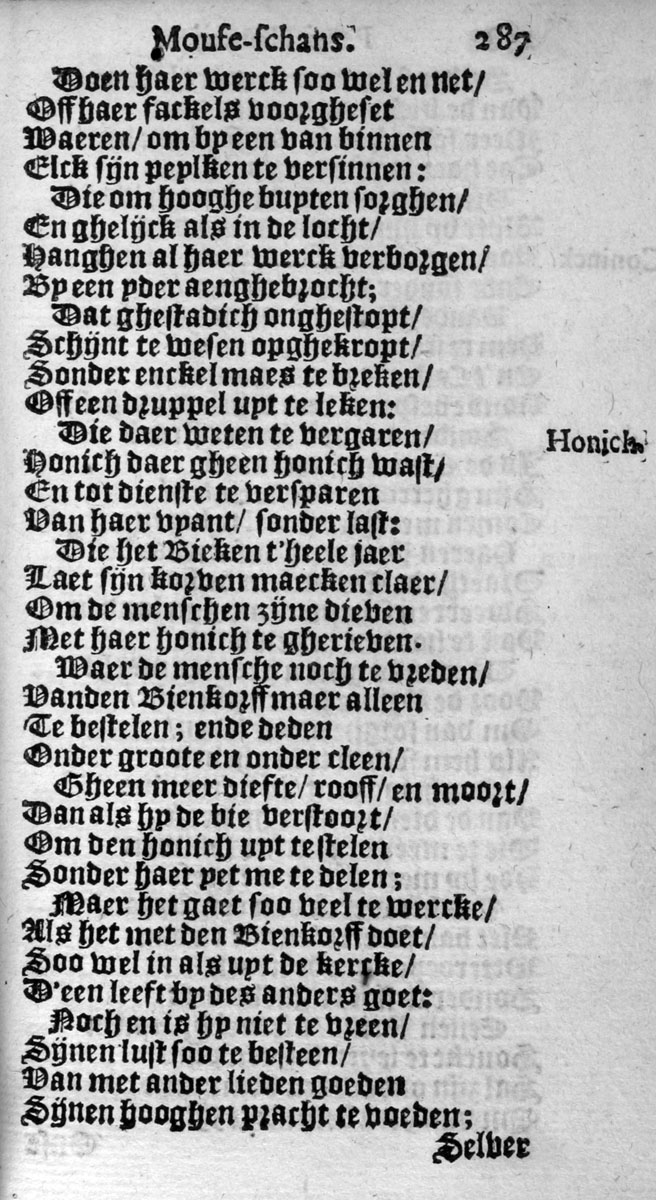 Mouse-schans. 287
Doen haer werck soo wel en net/
Off haer fackels voorgheset
Waeren/ om by een van binnen
Elck sijn peylken te versinnen:
Die om hooghe buyten sorghen/
En ghelijck als in de locht/
Hanghen al haer werck verborgen/
By een yder aenghebrocht;
Dat ghestadich onghestopt/
Schijnt te wesen opghekropt/
Sonder enckel maes te breken/
Off een druppel uyt te leken:
Die daer weten te vergaren/ Honich.
Honich daer gheen honich wast/
En tot dienste te versparen
Van haer vyant/ sonder last:
Die het Bieken t'heele jaer
Laet sijn korven maecken claer/
Om de menschen zijne dieven
Met haer honich te gherieven.
Waer de mensche noch te vreden/
Vanden Bienkorff maer alleen
Te bestelen; ende deden
Onder groote en onder cleen/
Gheen meer diefte/ rooff/ en moort/
Dan als hy de bie verstoort/
Om den honich uyt te stelen
Sonder haer yet me te delen;
Maer het gaet soo veel te wercke/
Als het met den Bienkorff doet/
Soo wel in als uyt de kercke/
D'een leeft by des anders goet:
Noch en is hy niet te vreen/
Sijnen lust soo te besteen/
Van met ander lieden goeden
Sijnen hooghen pracht te voeden;
Selver